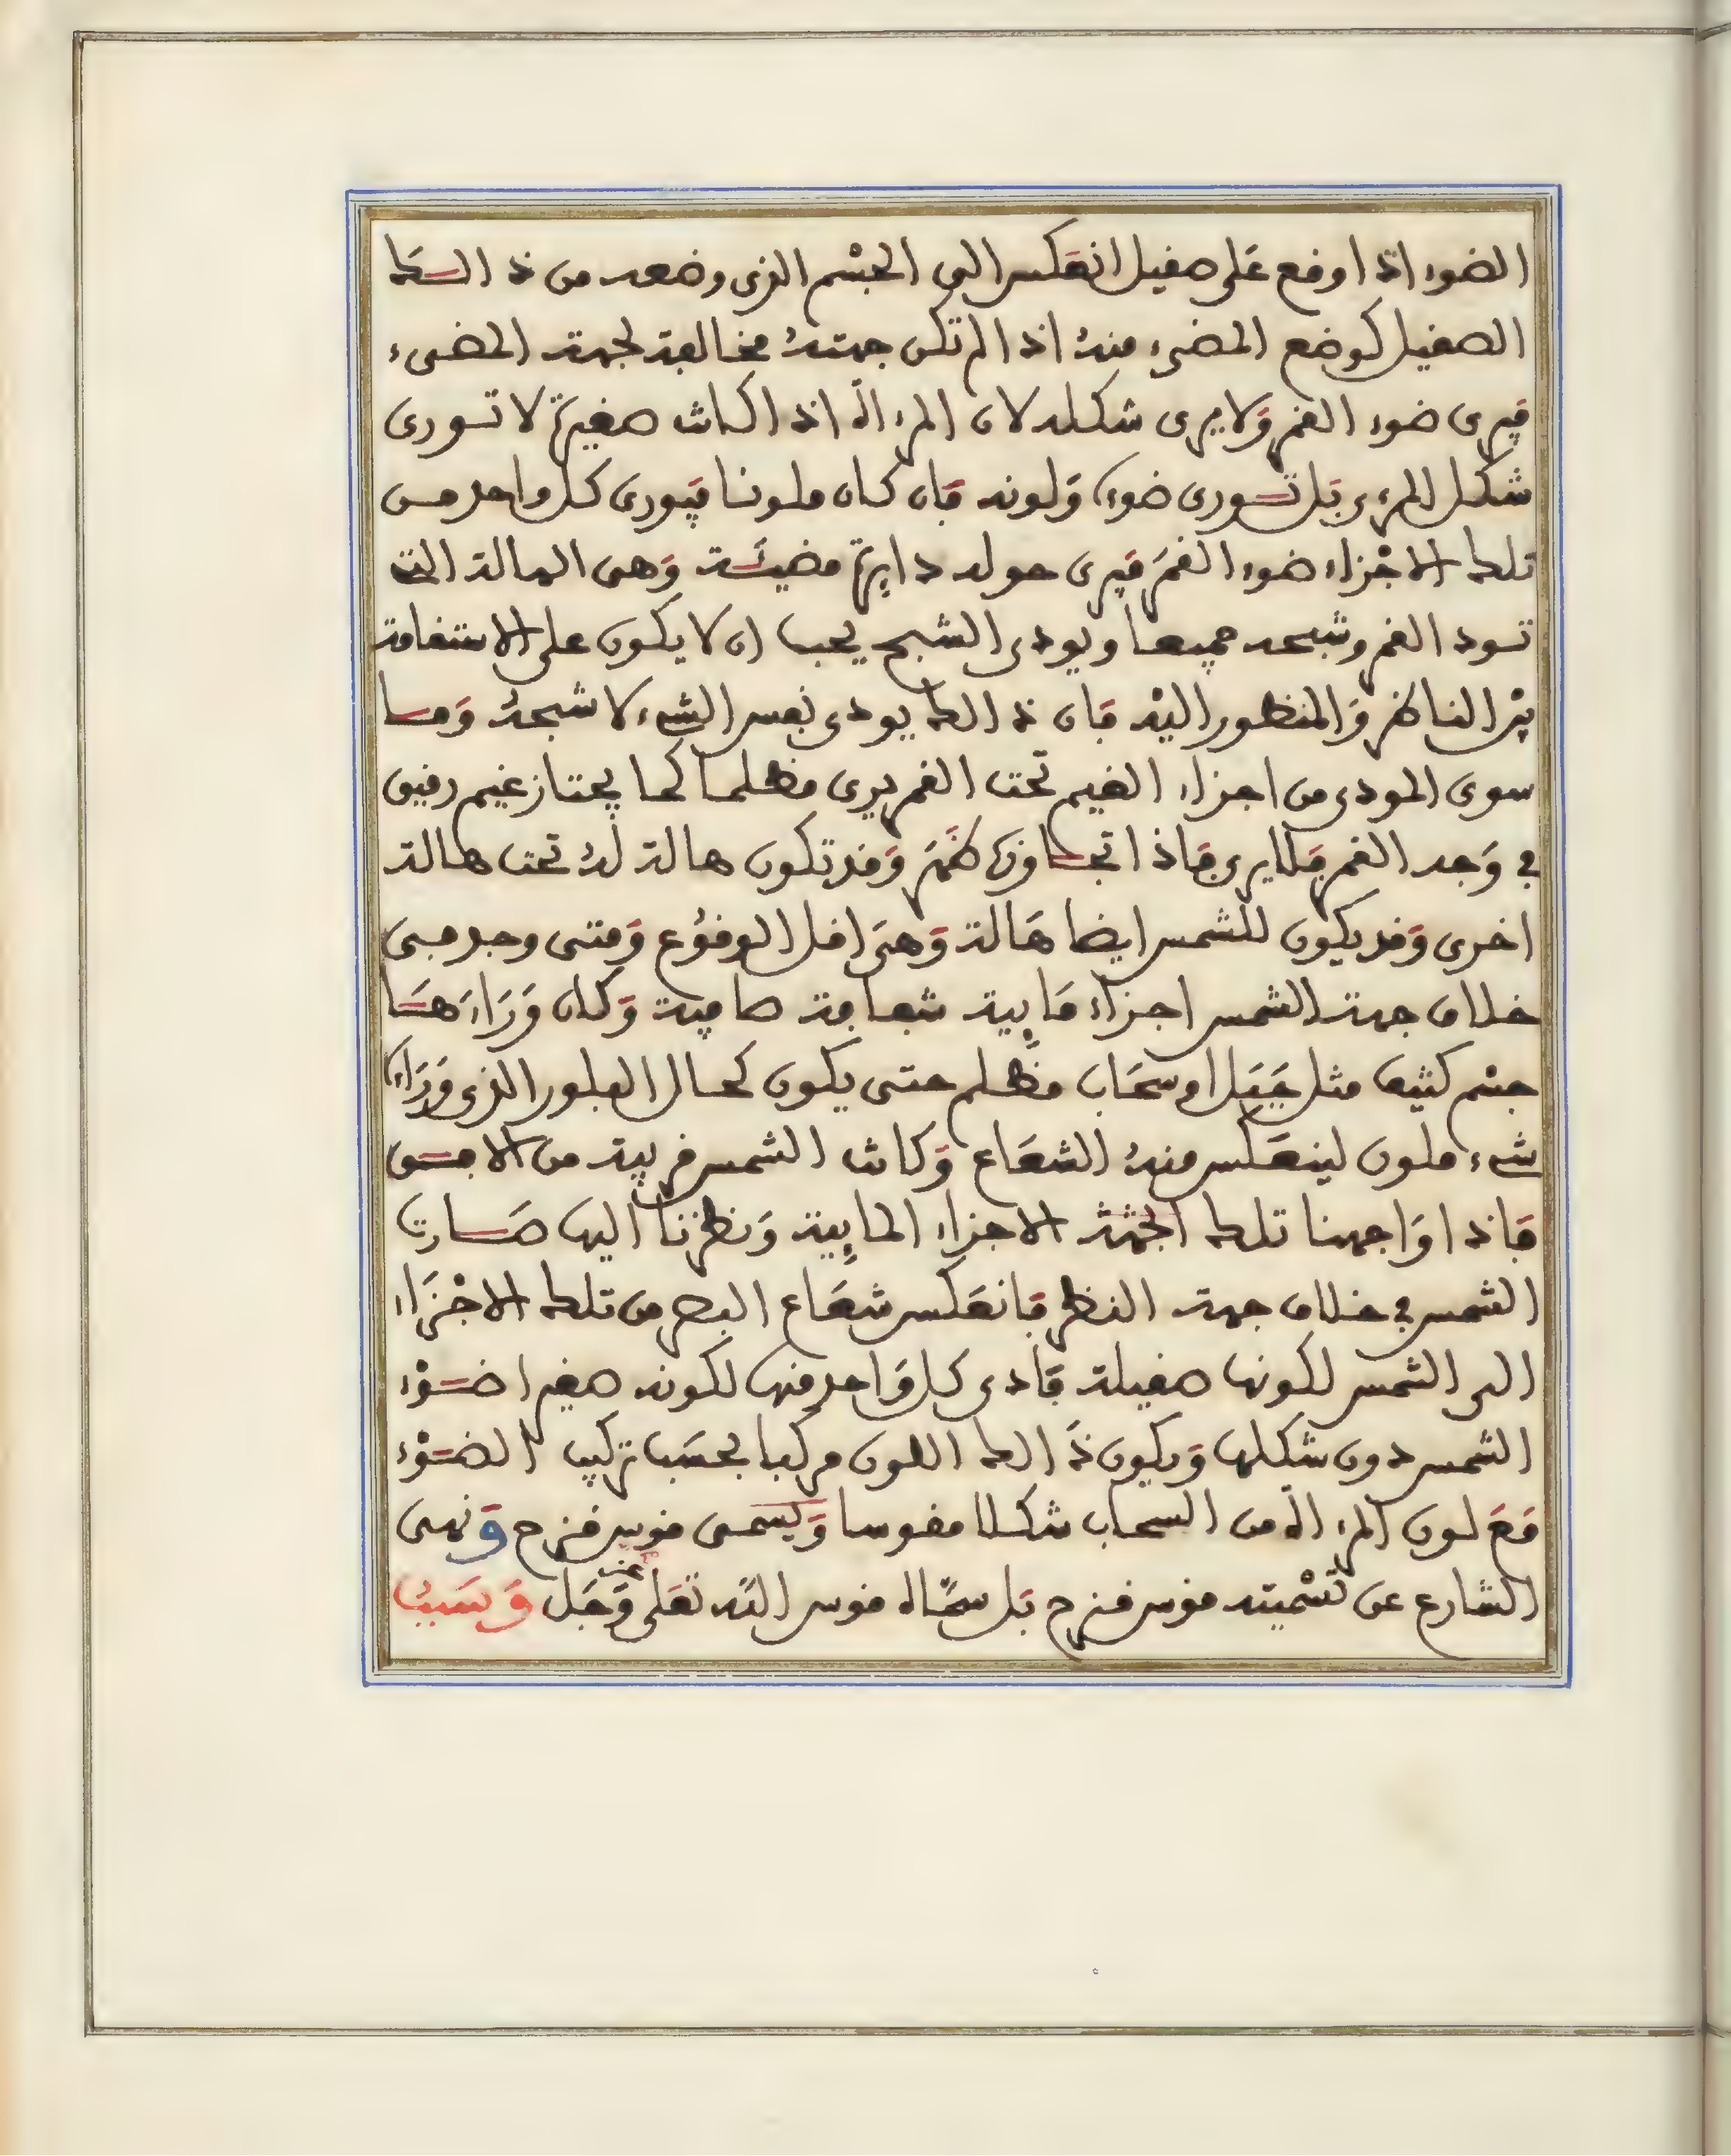 الضوء اذا وقع على صقيل انعكس الى الجسم الذى وضعه من ذالك
الصقيل كوضع المضىء منه اذا لم تكن جهته مخالفة لجهة المضىء
فيرى ضوء القمر ولا يرى شكله لان المرءاة اذا كانت صغيرة لا تودى
شكل المرءى بل تودى ضوءه ولونه فان كان ملونا فيودى كل واحد من
تلك الاجزاء ضوء القمر فيرى حوله دايرة مضيئة وهى الهالة التى
تود القمر وشبحه جميعا ويودى الشبح يجب ان لا يكون على الاستقامة
بين الناظر والمنظور اليه فان ذالك يودى نفس الشىء لا شبحه وما
سوى المودى من اجزاء الغيم تحت القمر يرى مظلما كما يجتاز غيم رقيق
في وجه القمر فلا يرى فاذا تجاوزه ظهر وقد تكون هالة له تحت هالة
اخرى وقد يكون للشمس ايضا هالة وهى اقل الوقوع ومتى وجد فى
خلاف جهة الشمس اجزاء مايية شفافة صافية وكان وراءها
جسم كثيف مثل جبل او سحاب مظلم حتى يكون كحال البلور الذى وراءه
شىء ملون لينعكس منه الشعاع وكانت الشمس قريبة من الافق
فاذا واجهنا تلك الجهة الاجزاء المايية ونظرنا اليها صارت
الشمس في خلاف جهة النظر فانعكس شعاع البصر من تلك الاجزاء
الى الشمس لكونها صقيلة فادى كل واحد منها لكونه صغيرا ضوء
الشمس دون شكلها ويكون ذالك اللون مركبا بحسب تركيب الضوء
مع لون المرءاة من السحاب شكلا مقوسا ويسمى قوس قزح ونهى
الشارع عن تسميته قوس قزح بل سماه قوس الله تعلى عز وجل وسبب